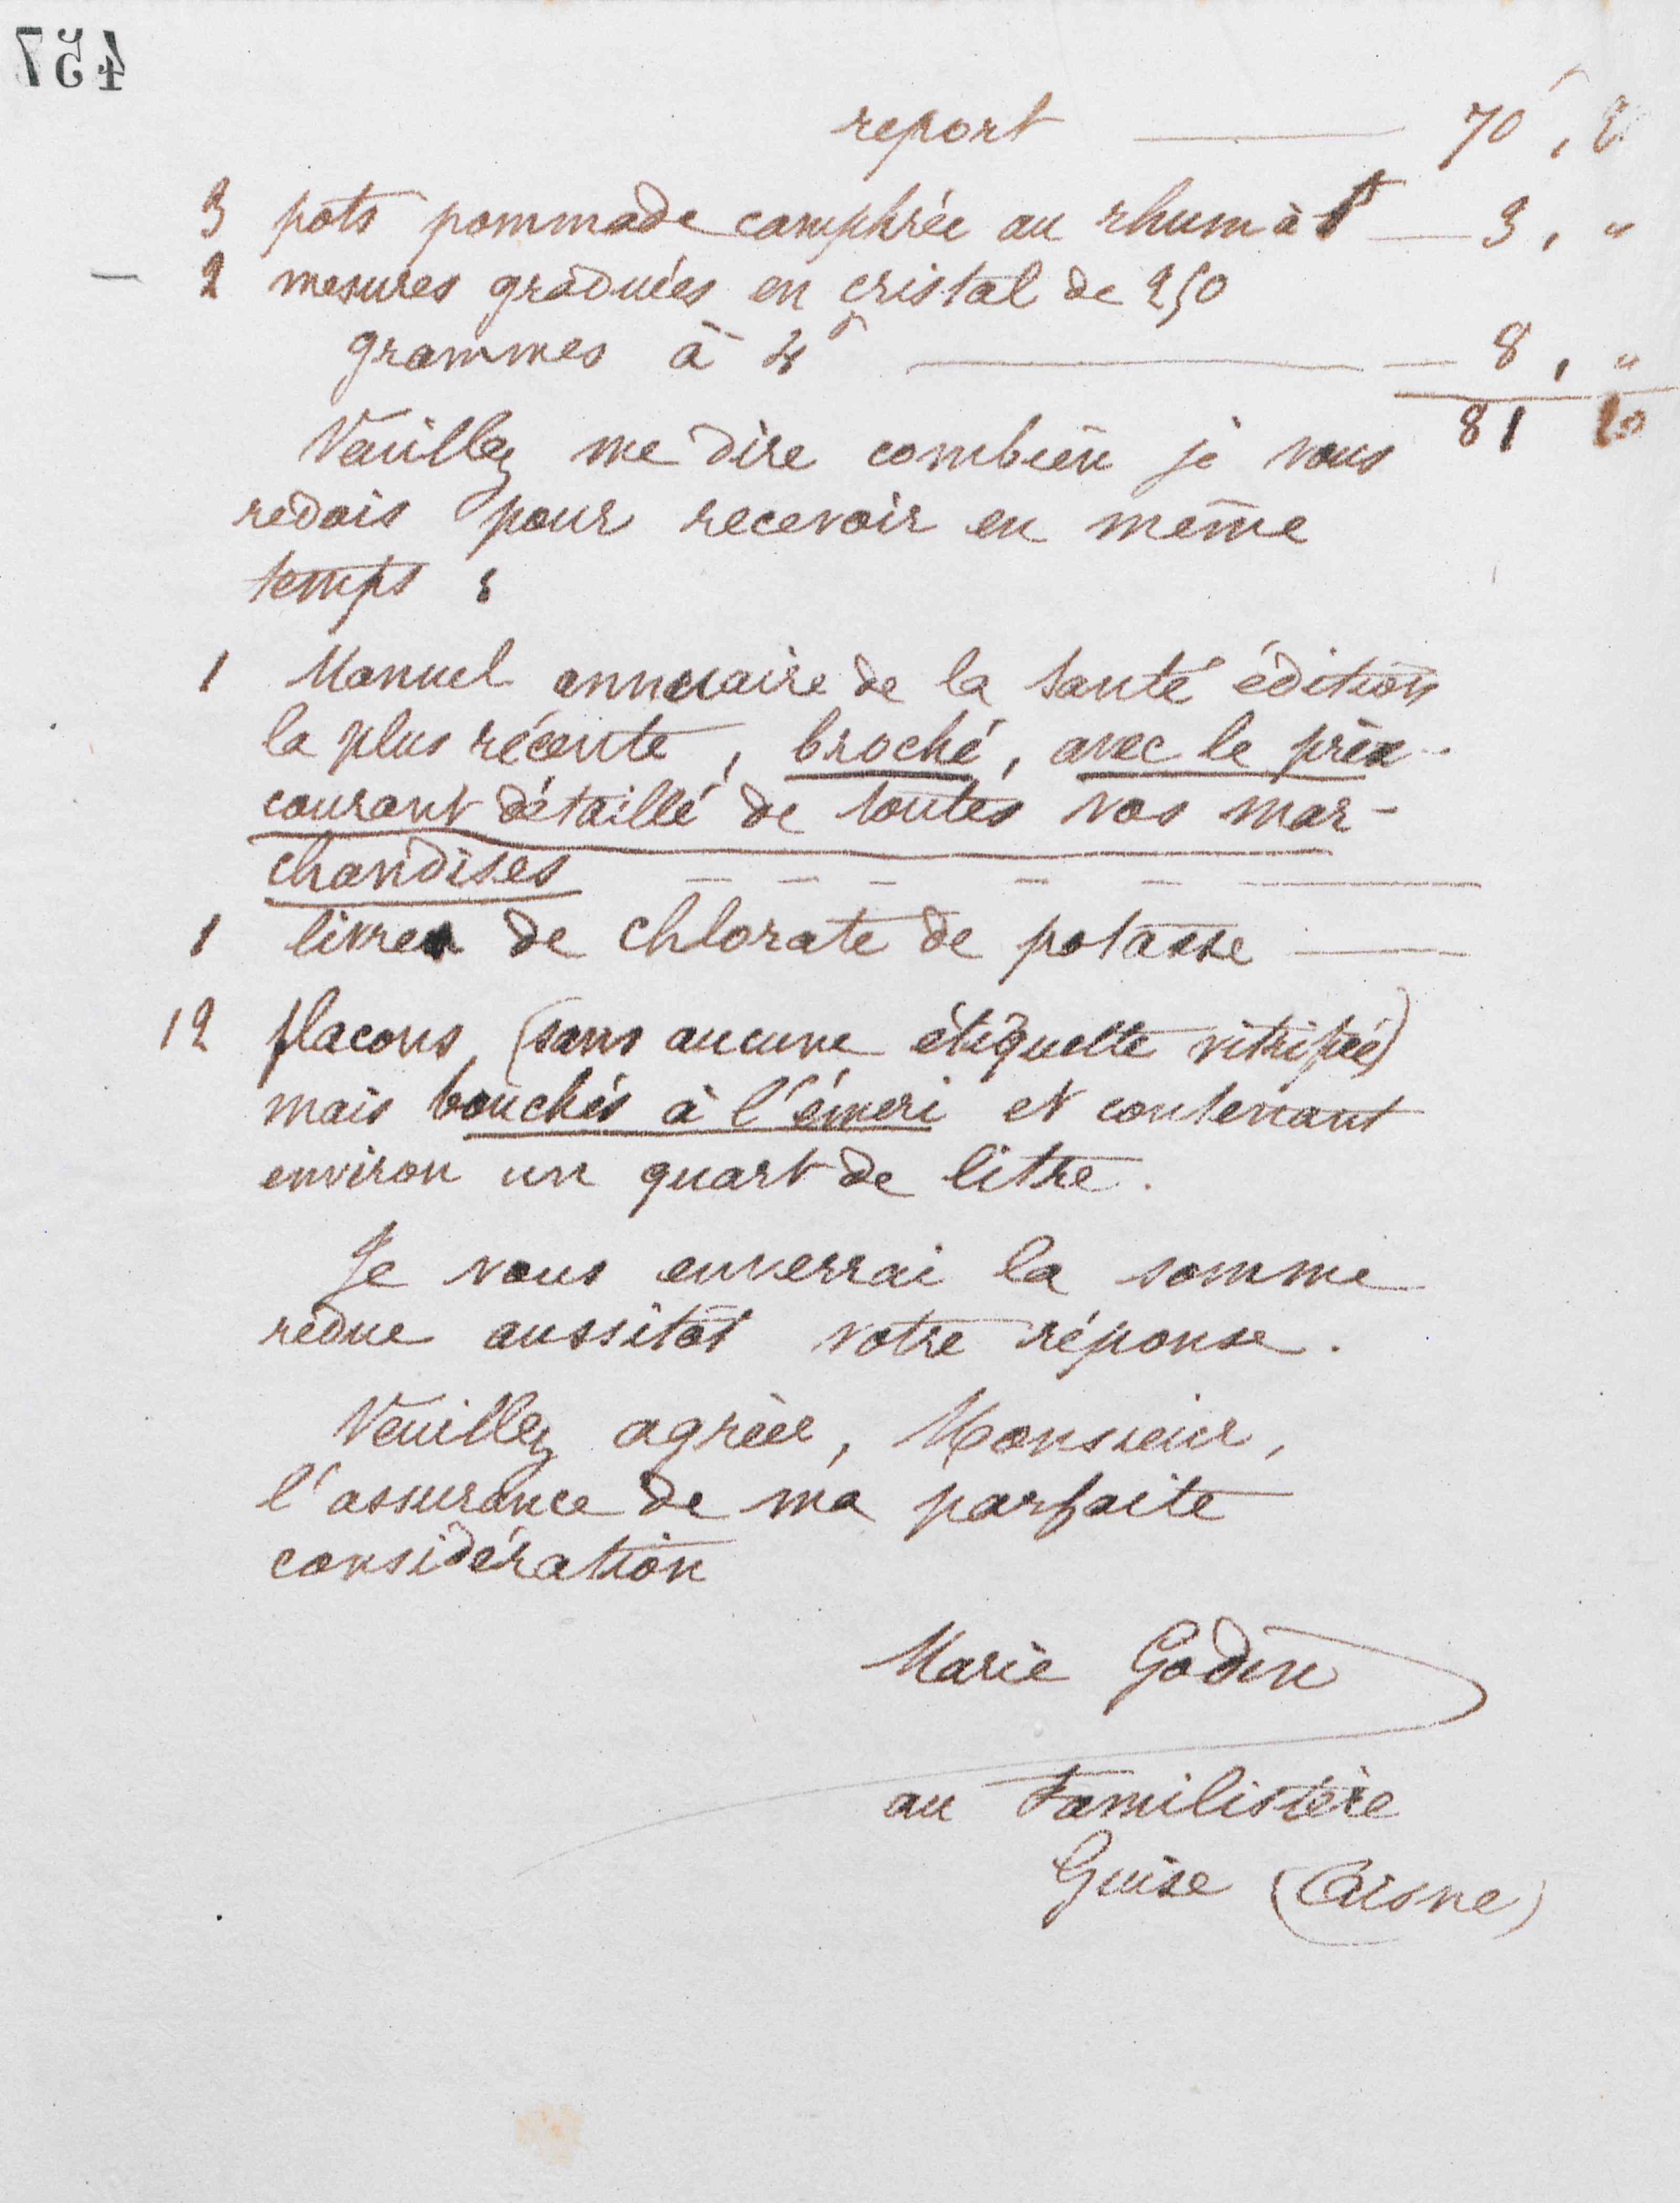 457
report — 70f,
3 pots pommade camphrée au rhum à 1f — 3, "
2 mesures graduées en cristal de 250
grammes à 4f — 8, "
81 10
Veuillez me dire combien je vous
redois pour recevoir en même
temps :
1 Manuel annuaire de la santé édition
la plus récente, broché, avec le prix-
courant détaillé de toutes vos mar-
chandises
1 livre de chlorate de potasse —
12 flacons, (sans aucune étiquette vitrifiée)
mais bouchés à l'émeri et contenant
environ un quart de litre.
Je vous enverrai la somme
redue aussitôt votre réponse.
Veuillez agréer, Monsieur,
l'assurance de ma parfaite
considération
Marie Godin
au Familistère
Guise (Aisne)